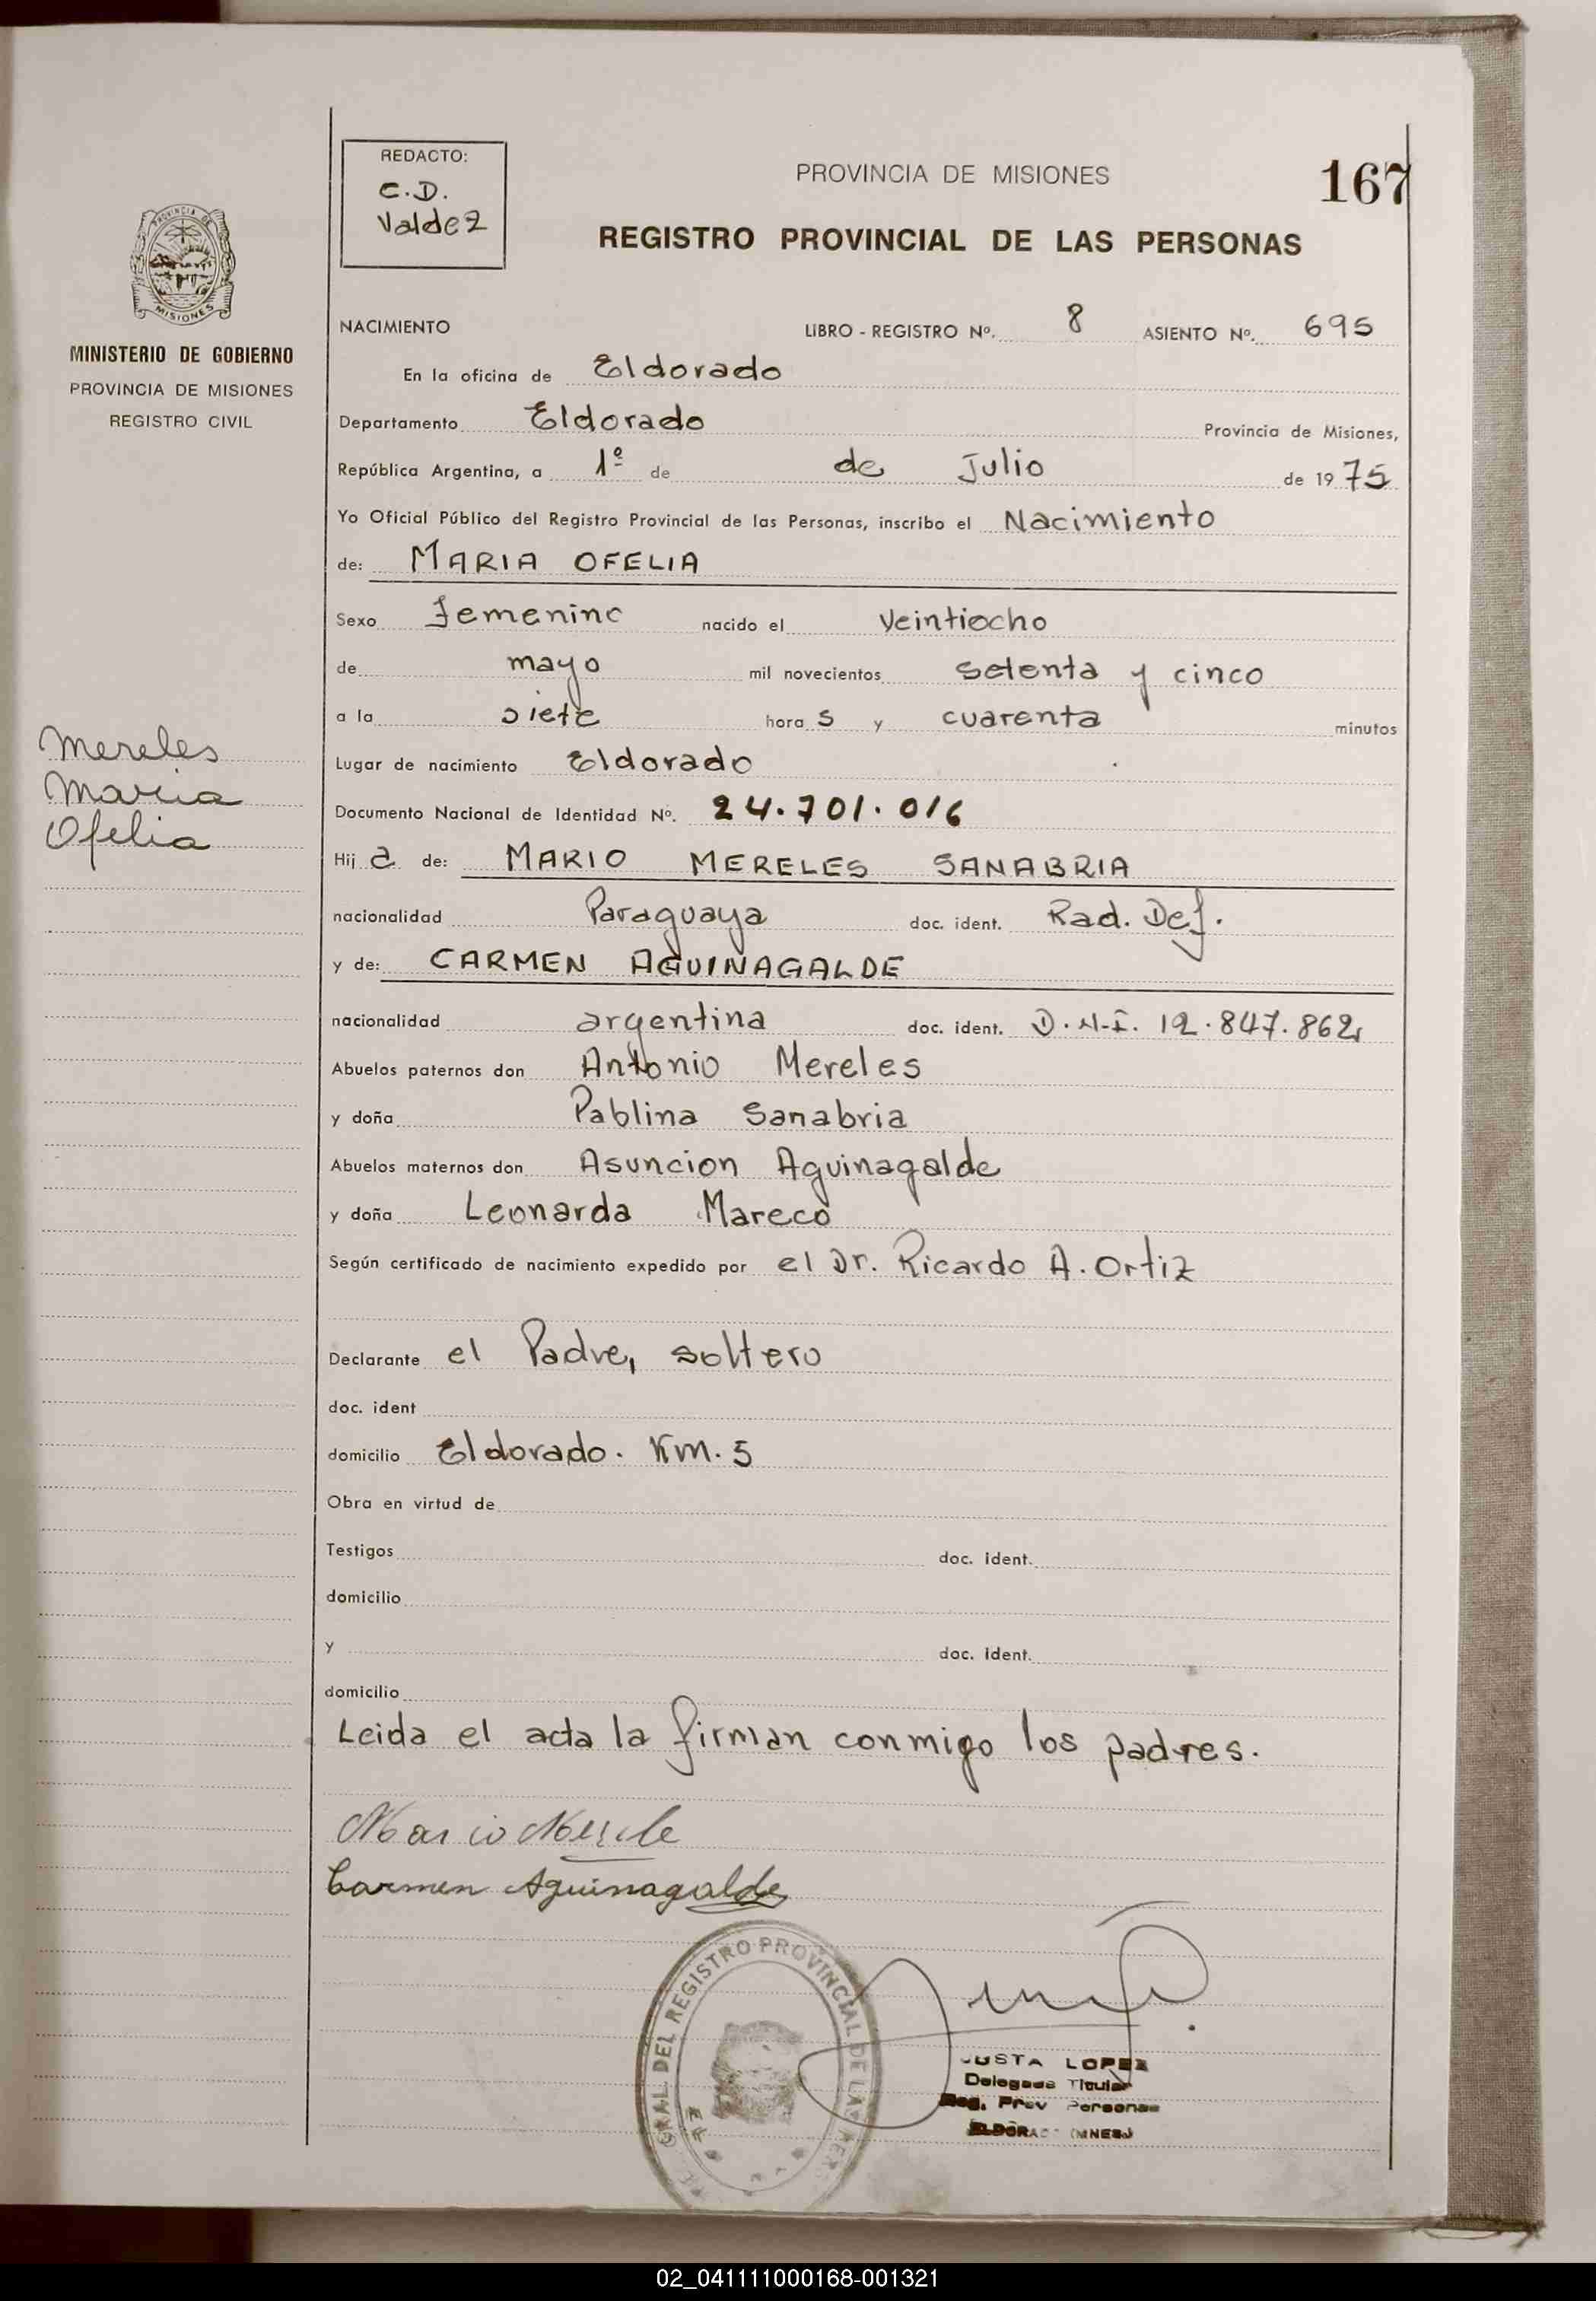 REDACTO:
C.D.
Valdez
PROVINCIA DE MISIONES
167
REGISTRO PROVINCIAL DE LAS PERSONAS
PROVINCIA DE
MISIONES
MINISTERIO DE GOBIERNO
PROVINCIA DE MISIONES
REGISTRO CIVIL
NACIMIENTO LIBRO - REGISTRO Nº. 8 ASIENTO Nº. 695
En la oficina de Eldorado
Departamento Eldorado Provincia de Misiones,
República Argentina, a 1º de de Julio de 1975
Yo Oficial Público del Registro Provincial de las Personas, inscribo el Nacimiento
de: MARIA OFELIA
Sexo femenino nacido el veintiocho
de mayo mil novecientos setenta y cinco
a la siete hora s y cuarenta minutos
Mereles
Maria
Ofelia
Lugar de nacimiento Eldorado
Documento Nacional de Identidad Nº. 24.701.016
Hij a de: MARIO MERELES SANABRIA
nacionalidad Paraguaya doc. ident. Rad. Def.
y de: CARMEN AGUINAGALDE
nacionalidad argentina doc. ident. D.N.I. 12.847.862
Abuelos paternos don Antonio Mereles
y doña Pablina Sanabria
Abuelos maternos don Asuncion Aguinagalde
y doña Leonarda Mareco
Según certificado de nacimiento expedido por el Dr. Ricardo A. Ortiz
Declarante el Padre, soltero
doc. ident
domicilio Eldorado. Km. 5
Obra en virtud de
Testigos doc. ident.
domicilio
y doc. ident.
domicilio
Leida el acta la firman conmigo los padres.
Mario Merele
Carmen Aguinagalde
GRAL. DEL REGISTRO PROVINCIAL DE LAS PERS
JUSTA LOPEZ
Delegada Titular
Reg. Prov Personas
ELDORADO (MNES)
02_041111000168-001321